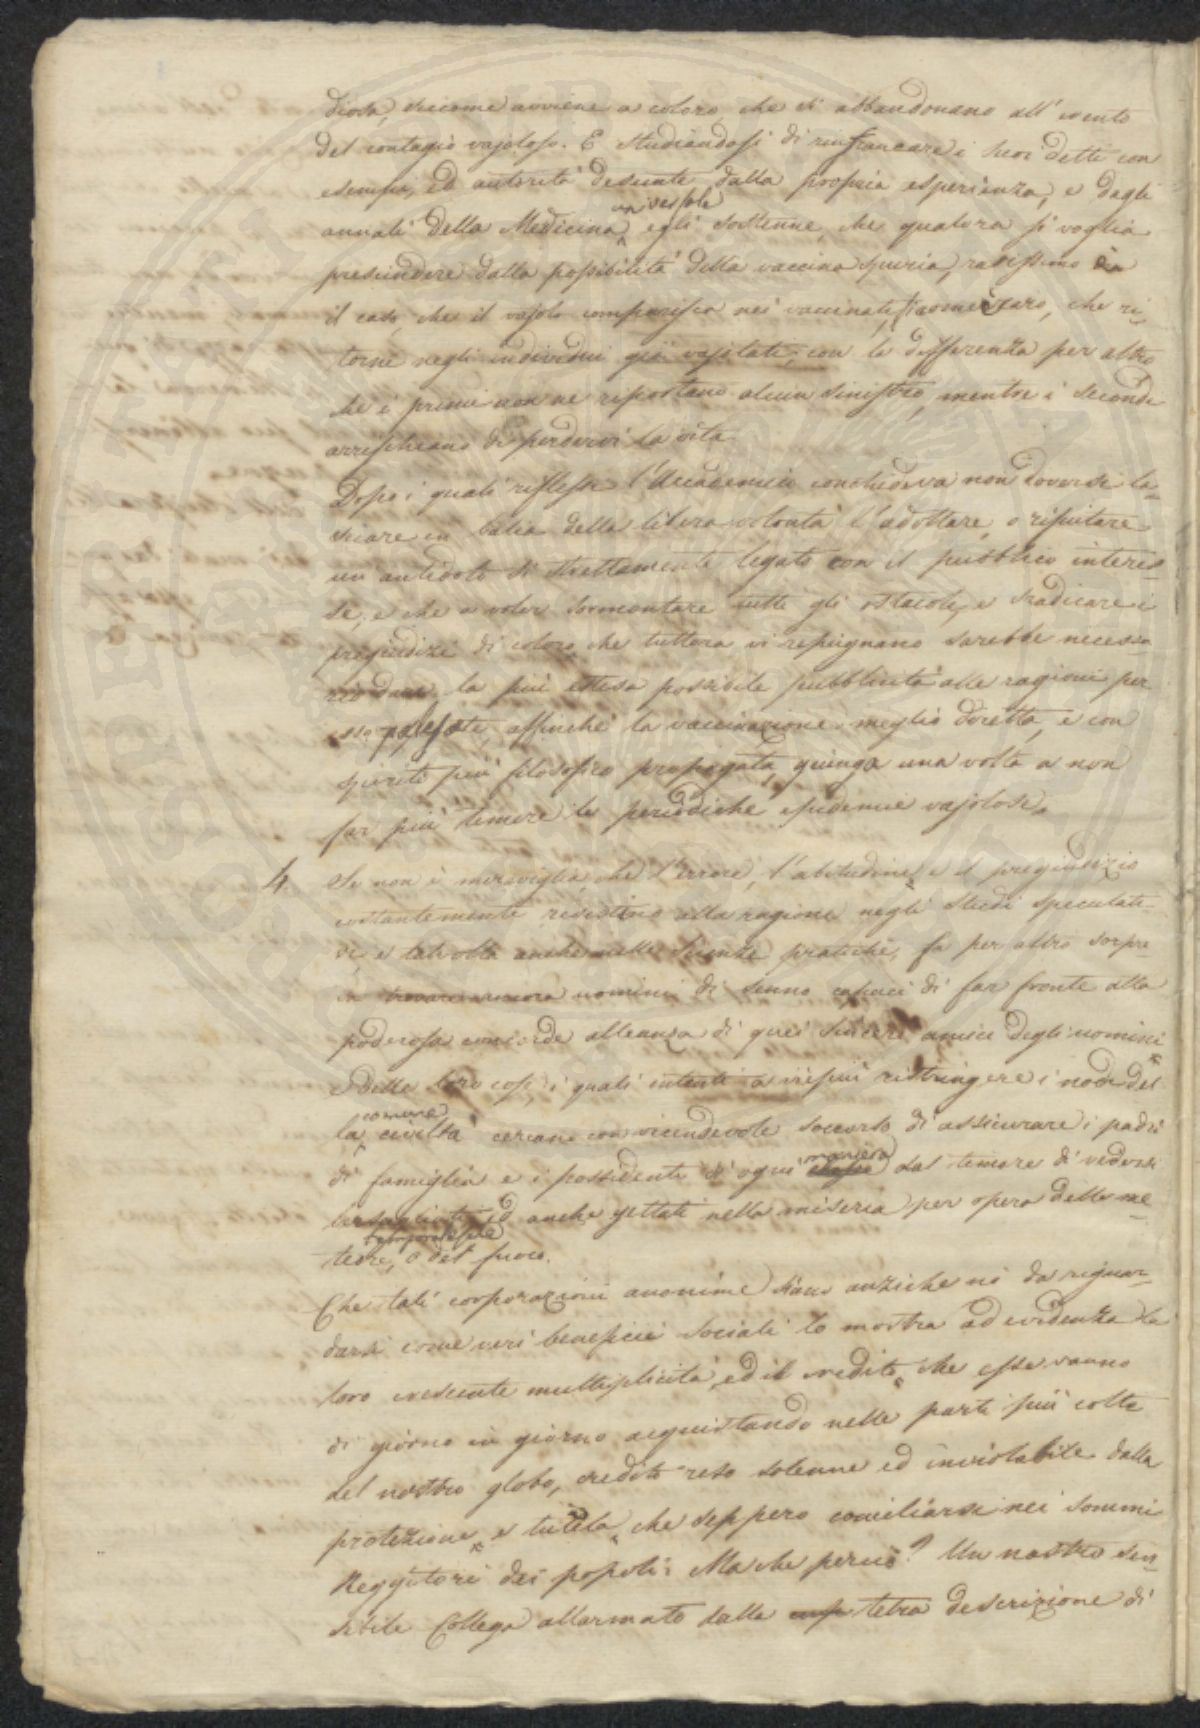 diosa, siccome avviene a coloro, che si abbandonano all'evento
del contagio vajoloso. E studiandosi di rinfrancare i suoi detti con
esempi, ed autorità desunte dalla propria esperienza, e dagli
annali della Medicina universale egli sostenne, che qualora si voglia
prescindere dalla possibilità della vaccina spuria, rarissimo
il caso, che il vajolo comparisca nei vaccinati, siccome raro, che ri-
torni negli individui già vajolati, con la differenza per altro
che i primi non ne riportano alcun sinistro, mentre i secondi
arrischiano di perdervi la vita.
Dopo i quali riflessi l'Accademico conchiudeva non doversi la-
sciare in balia della libera volontà l'adottare, o rifiutare
un antidoto sì strettamente legato con il pubblico interes-
se, e che a voler sormontare tutti gli ostacoli, e sradicare i
pregiudizi di coloro, che tuttora vi repugnano sarebbe necessa
rio dare la più estesa possibile pubblicità alle ragioni per
esso palesate, affinché la vaccinazione meglio diretta, e con
spirito più filosofico propagata, giunga una volta a non
far più temere le periodiche epidemie vajolose.
4. Se non è meraviglia, che l'errore, l'abitudine, e il pregiudizio
costantemente resistino alla ragione negli studi speculati-
vi, e talvolta anche nelle scienze pratiche, fa per altro sorpre
sa trovare ancora uomini di senno capaci di far fronte alla
poderosa concorde alleanza di quei sinceri amici degli uomini
e delle loro cose, i quali intenti a viepiù ristringere i nodi del-
la comune civiltà cercano con vicendevole soccorso di assicurare i padri
di famiglia e i possidenti di ogni maniera dal timore di vedersi
anche gettati nella miseria per opera delle me-
teore, o del fuoco.
Che tali corporazioni anonime siano anziché nò da riguar-
darsi come veri beneficii sociali lo mostra ad evidenza la
loro crescente multiplicità, ed il credito, che esse vanno
di giorno in giorno acquistando nelle parti più colte
del nostro globo, credito reso solenne ed inviolabile dalla
protezione, e tutela, che seppero conciliarsi nei sommi
Reggitori dei popoli: Ma che perciò? Un nostro sen-
sibile Collega allarmato dalla tetra descrizione di